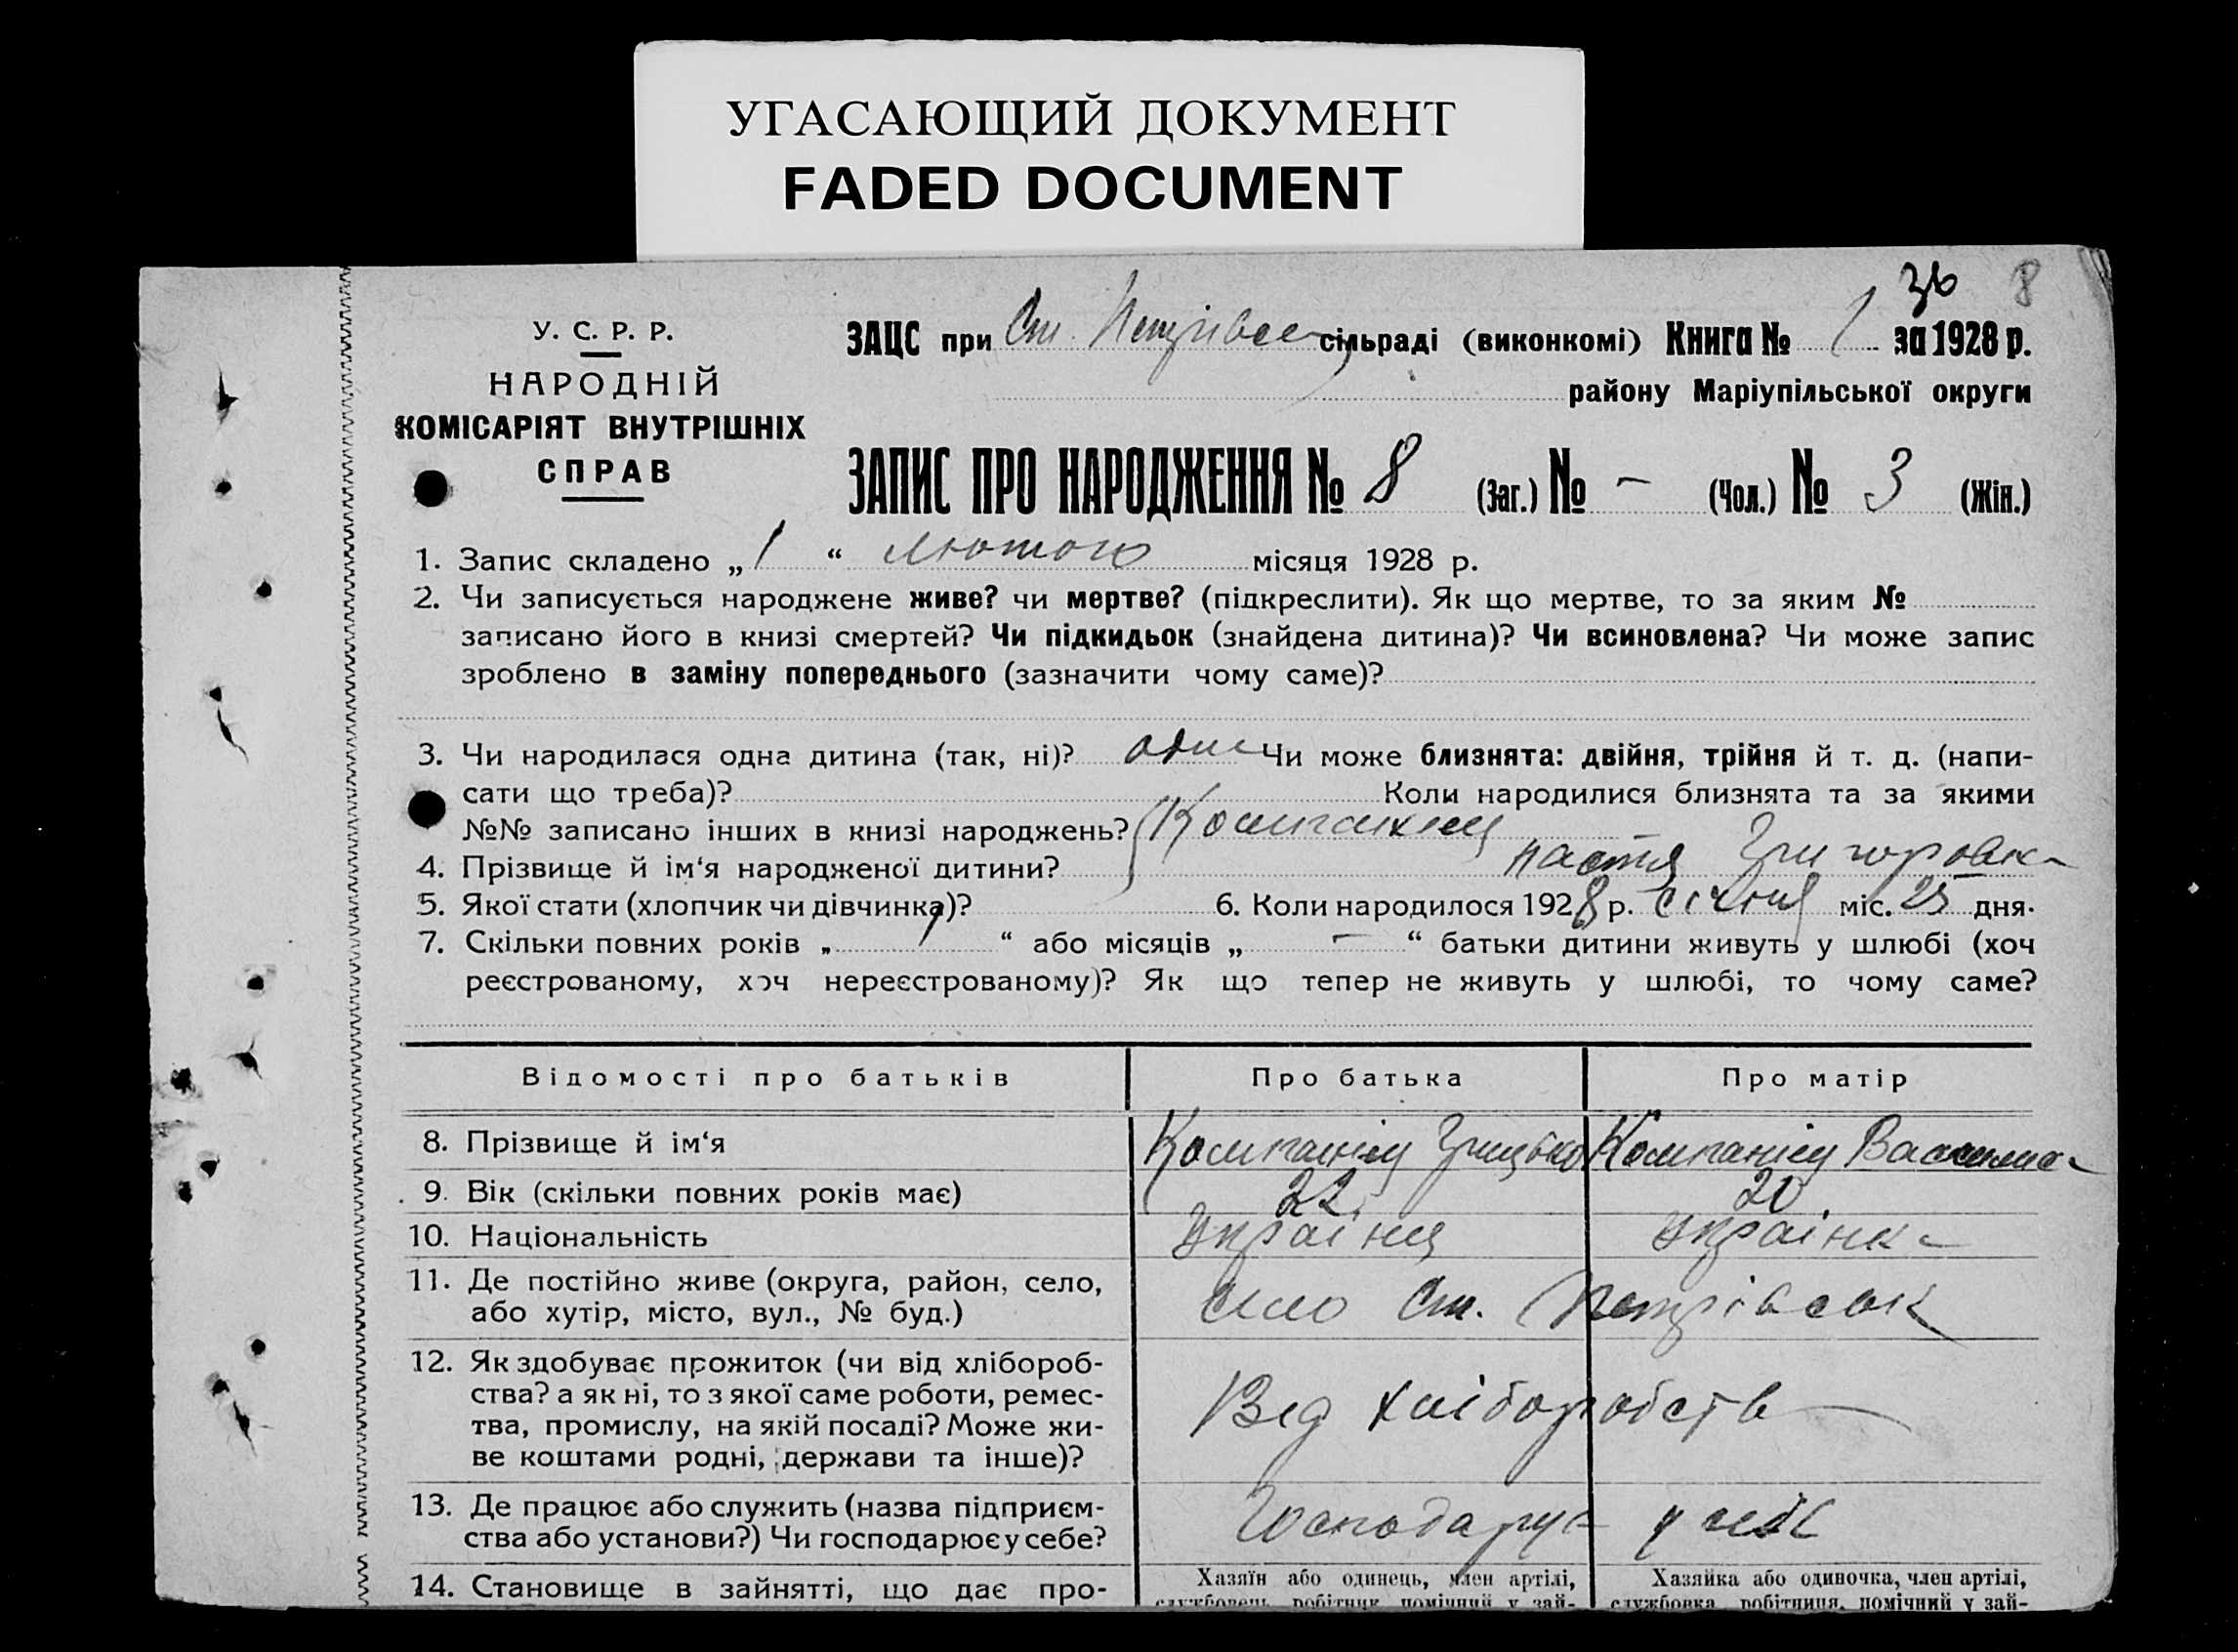 УГАСАЮЩИЙ ДОКУМЕНТ
FADED DOCUMENT
36 8
У. С. Р. Р.
НАРОДНІЙ
КОМІСАРІЯТ ВНУТРІШНІХ
СПРАВ
ЗАЦС при Ст. сільраді (виконкомі) Книга № 1 за 1928 р.
району Маріупільської округи
ЗАПИС ПРО НАРОДЖЕННЯ № 8 (Заг.) № - (Чол.) № 3 (Жін.)
1. Запис складено „ 1 “ лютого місяця 1928 р.
2. Чи записується народжене живе? чи мертве? (підкреслити). Як що мертве, то за яким №
записано його в книзі смертей? Чи підкидьок (знайдена дитина)? Чи всиновлена? Чи може запис
зроблено в заміну попереднього (зазначити чому саме)?
3. Чи народилася одна дитина (так, ні)? одна Чи може близнята: двійня, трійня й т. д. (напи-
сати що треба)? Коли народилися близнята та за якими
№№ записано інших в книзі народжень? Компаніец
4. Прізвище й ім‘я народженої дитини? Настя Григоровна
5. Якої стати (хлопчик чи дівчинка)? 6. Коли народилося 1928 р. січня міс. 25 дня.
7. Скільки повних років „ 1 “ або місяців „ - “ батьки дитини живуть у шлюбі (хоч
реєстрованому, хоч нереєстрованому)? Як що тепер не живуть у шлюбі, то чому саме?
Відомості про батьків Про батька Про матір
8. Прізвище й ім‘я Компаніец Грицько Компаніец Василиса
9. Вік (скільки повних років має) 22 20
10. Національність Українец Українка
11. Де постійно живе (округа, район, село,
або хутір, місто, вул., № буд.) село Ст. Петрівськ
12. Як здобуває прожиток (чи від хлібороб-
ства? а як ні, то з якої саме роботи, ремес-
тва, промислу, на якій посаді? Може жи-
ве коштами родні, держави та інше)? Від хліборобства
13. Де працює або служить (назва підприєм-
ства або установи?) Чи господарює у себе? Господарує у себе
14. Становище в зайнятті, що дає про-
Хазяїн або одинець, член артілі,
службовець, робітник, помічний у зай-
Хазяйка або одиночка, член артілі,
службовка, робітниця, помічний у зай-